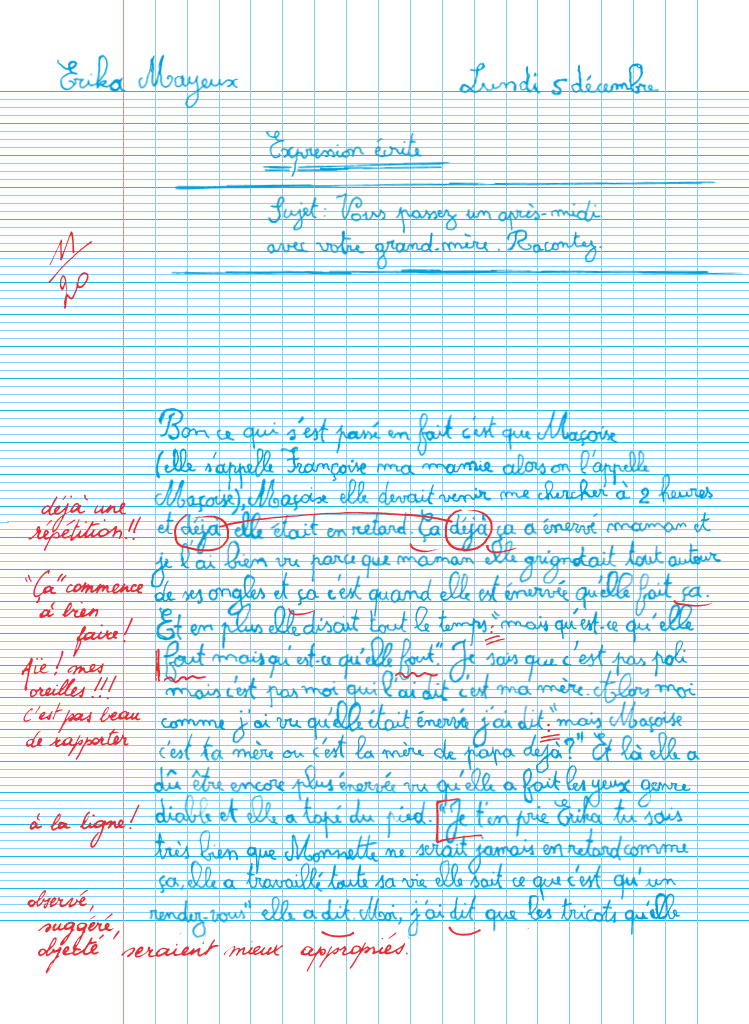 Erika Mayeux
Lundi 5 décembre
Expression écrite
Sujet : Vous passez un après-midi
avec votre grand-mère. Racontez.
11/20
Bon ce qui s'est passé en fait c'est que Maçoise
(elle s'appelle Françoise ma mamie alors on l'appelle
Maçoise), Maçoise elle devait venir me chercher à 2 heures
déjà une
répétition!!
et déjà elle était en retard. Ça déjà ça a énervé maman et
je l'ai bien vu parce que maman elle grignotait tout autour
"Ça" commence
à bien
faire!
de ses ongles et ça c'est quand elle est énervée qu'elle fait ça.
Et en plus elle disait tout le temps : "mais qu'est-ce qu'elle
Aïe! mes
oreilles!!!
fout mais qu'est-ce qu'elle fout". Je sais que c'est pas poli
mais c'est pas moi qui l'ai dit c'est ma mère. Alors moi
C'est pas beau
de rapporter
comme j'ai vu qu'elle était énervée j'ai dit : "mais Maçoise
c'est ta mère ou c'est la mère de papa déjà?" Et là elle a
dû être encore plus énervée vu qu'elle a fait les yeux genre
à la ligne!
diable et elle a tapé du pied. "Je t'en prie Erika tu sais
très bien que Monnette ne serait jamais en retard comme
ça, elle a travaillé toute sa vie elle sait ce que c'est qu'un
rendez-vous" elle a dit. Moi, j'ai dit que les tricots qu'elle
observé,
suggéré,
objecté seraient mieux appropriés.